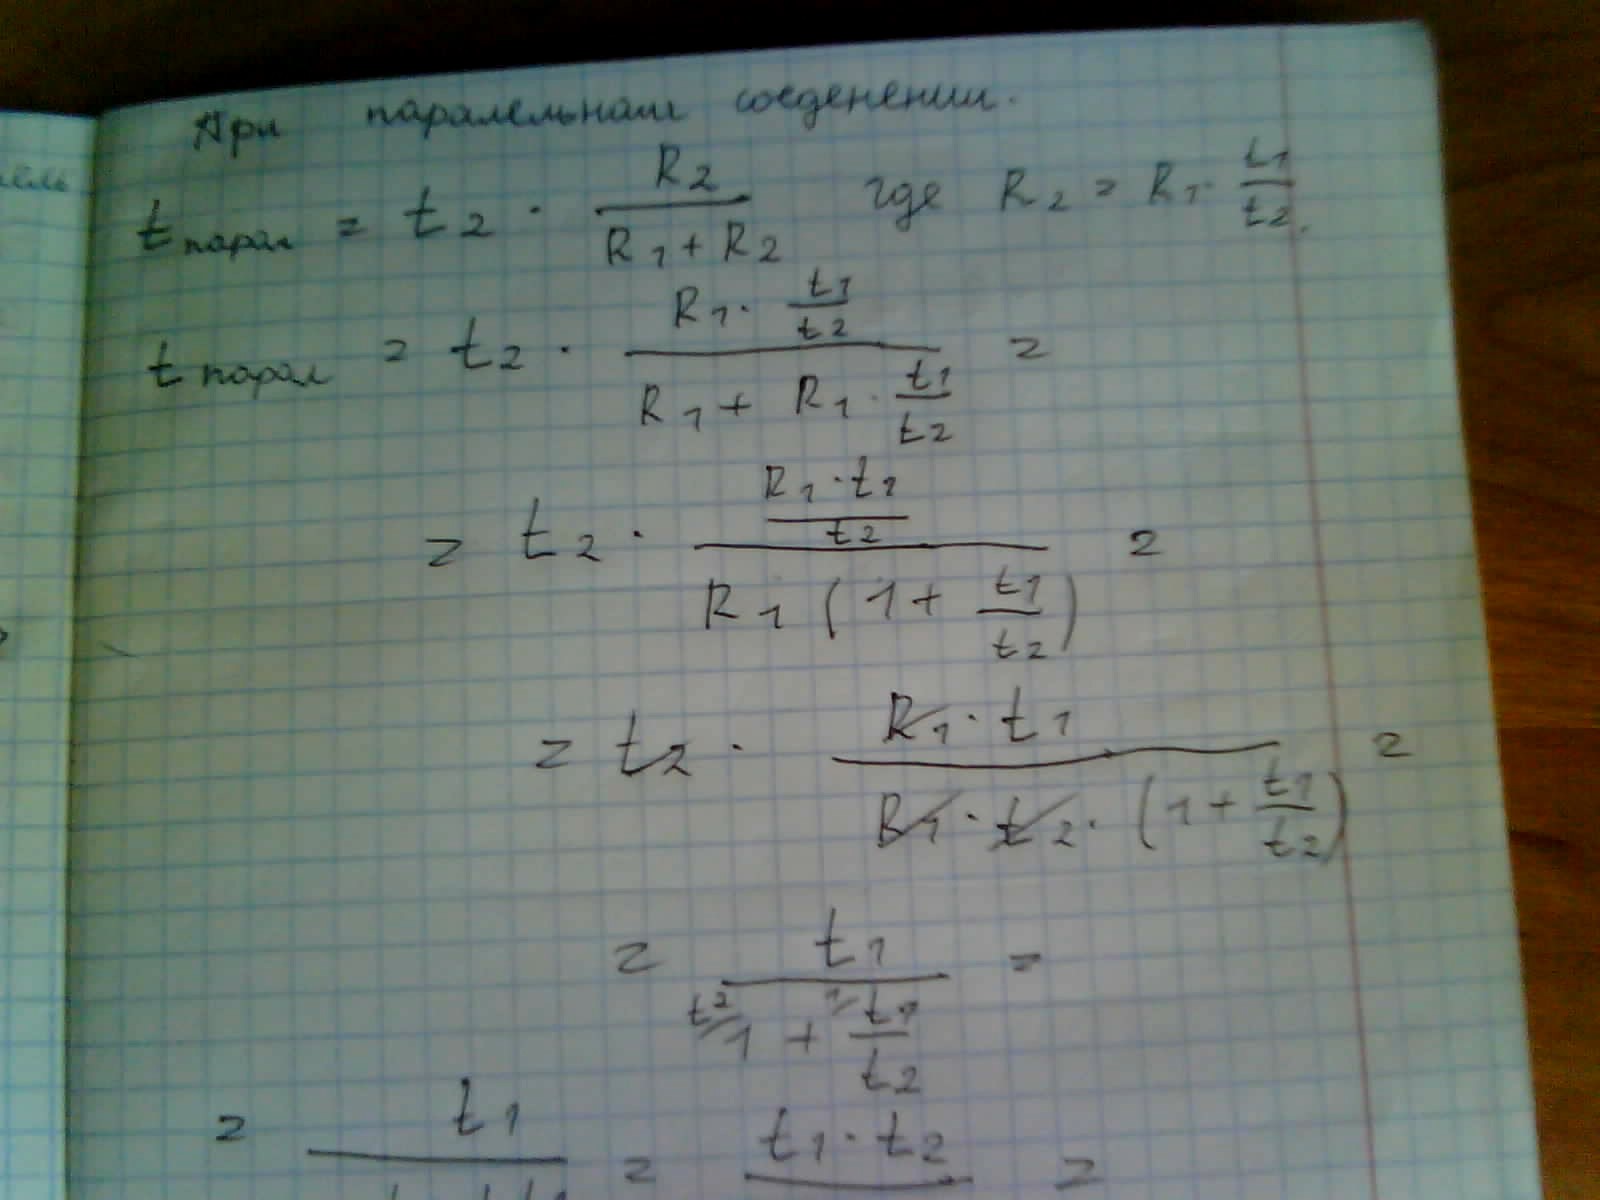 При паралельном соеденении.
t парал = t2 · R2 / (R1 + R2) где R2 = R1 · t1 / t2.
t парал = t2 · (R1 · t1 / t2) / (R1 + R1 · t1 / t2) =
= t2 · (R1 · t1 / t2) / (R1 (1 + t1 / t2)) =
= t2 · (R1 · t1) / (R1 · t2 · (1 + t1 / t2)) =
= t1 / (t2/ 1 + 1/ t1 / t2) =
= t1 = t1 · t2 =